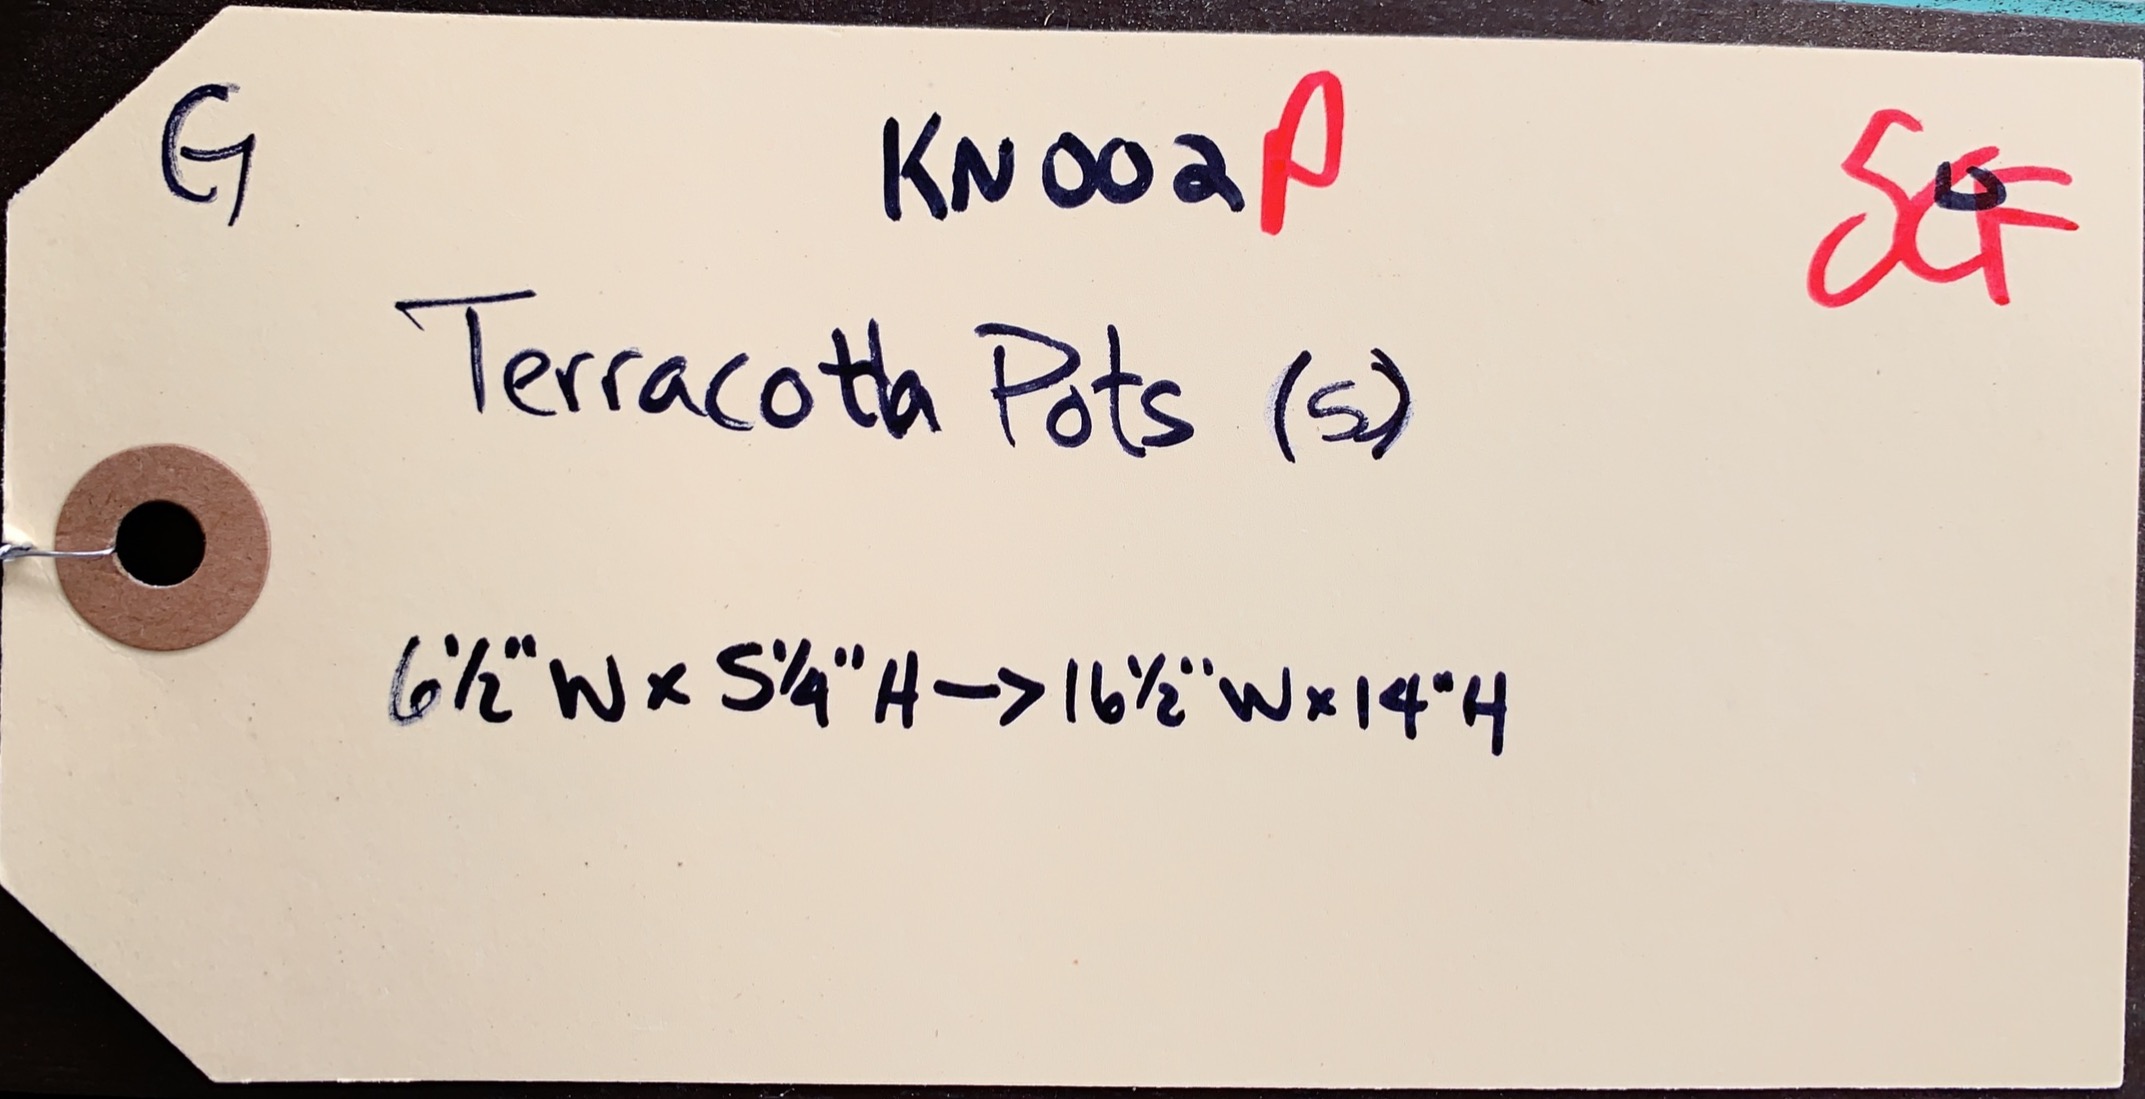 G KN002P SCF
Terracotta Pots (5)
6 1/2" W x 5 1/4" H -> 16 1/2" W x 14" H